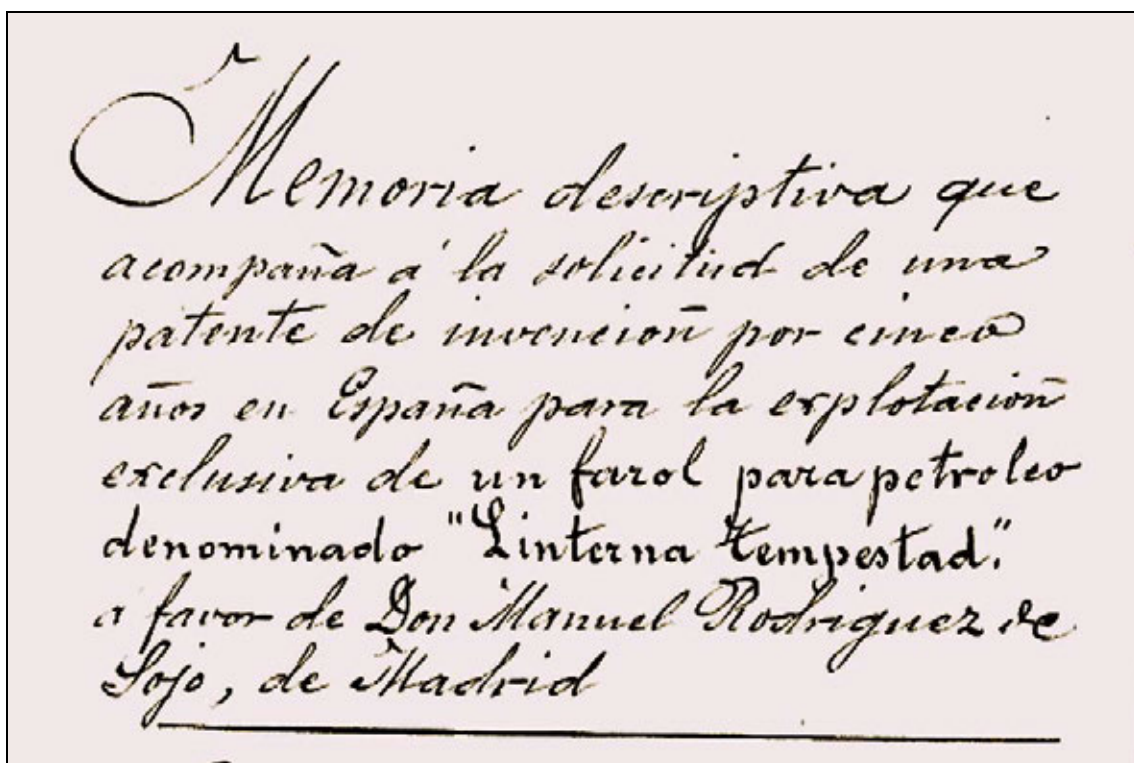 Memoria descriptiva que
acompaña á la solicitud de una
patente de invención por cinco
años en España para la explotación
exclusiva de un farol para petroleo
denominado "Linterna tempestad".
a favor de Don Manuel Rodriguez de
Sojo, de Madrid